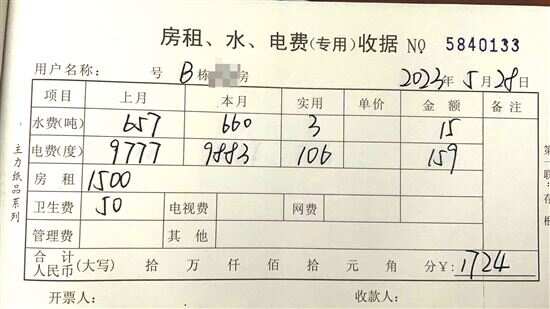 房租、水、电费(专用)收据 NO. 5840133
用户名称: 号 B 栋 房 2023年5月28日
项目 上月 本月 实用 单价 金额 备注
水费(吨) 657 660 3 15
电费(度) 9777 9883 106 159
房租 1500
卫生费 50 电视费 网费
管理费 其他
合计人民币(大写) 拾 万 仟 佰 拾 元 角 分¥: 1724
开票人: 收款人:
主力纸品系列
第一联:存根